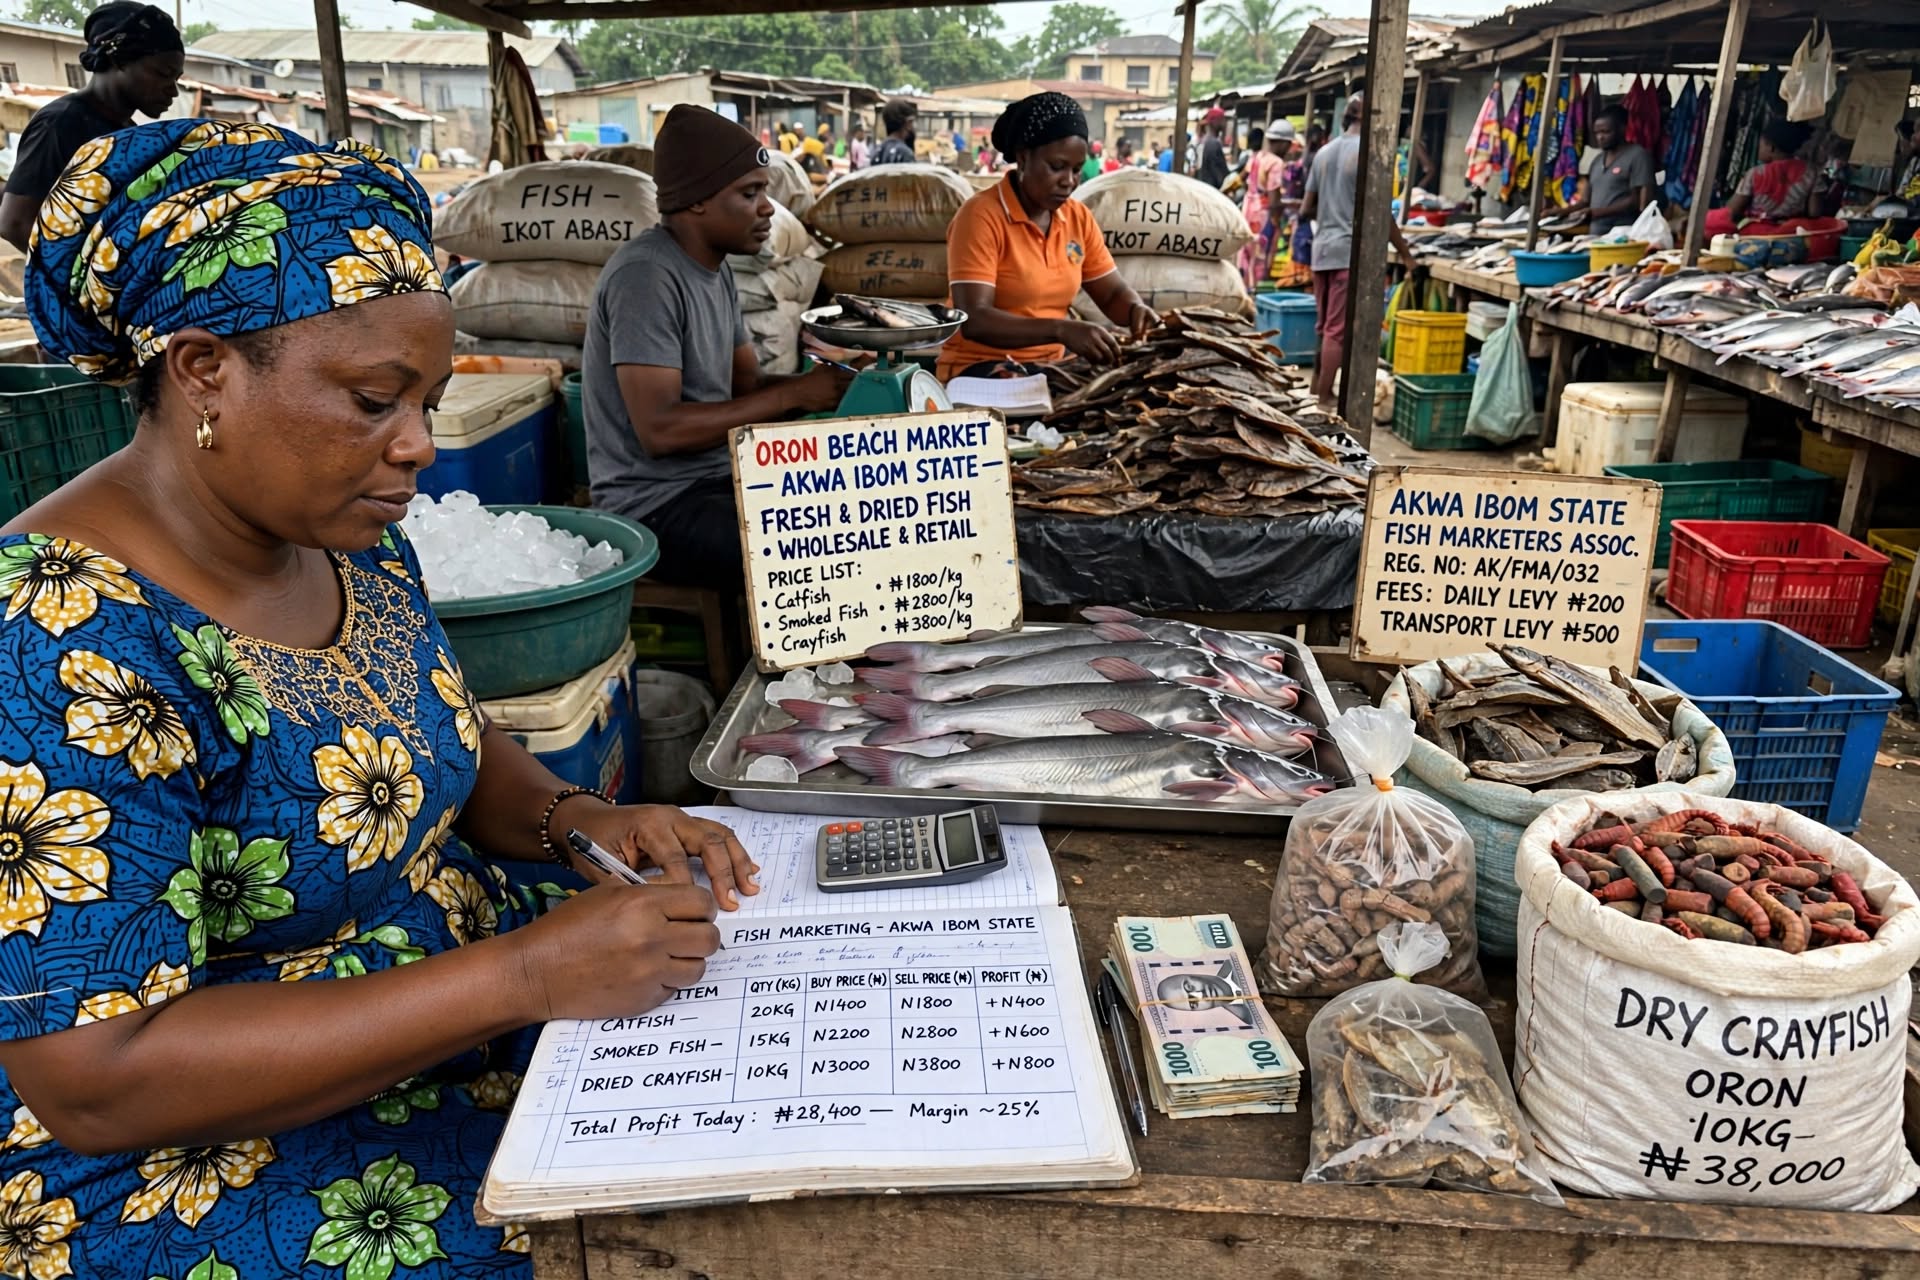 FISH –
IKOT ABASI
FISH –
IKOT ABASI
ORON BEACH MARKET
— AKWA IBOM STATE —
FRESH & DRIED FISH
• WHOLESALE & RETAIL
PRICE LIST:
• Catfish • ₦1800/kg
• Smoked Fish • ₦2800/kg
• Crayfish • ₦3800/kg
AKWA IBOM STATE
FISH MARKETERS ASSOC.
REG. NO: AK/FMA/032
FEES: DAILY LEVY ₦200
TRANSPORT LEVY ₦500
FISH MARKETING – AKWA IBOM STATE
ITEM QTY (KG) BUY PRICE (₦) SELL PRICE (₦) PROFIT (₦)
CATFISH — 20KG N1400 N1800 +N400
SMOKED FISH – 15KG N2200 N2800 +N600
DRIED CRAYFISH – 10KG N3000 N3800 +N800
Total Profit Today: ₦28,400 — Margin ~25%
1000
100
DRY CRAYFISH
ORON
10KG–
₦38,000